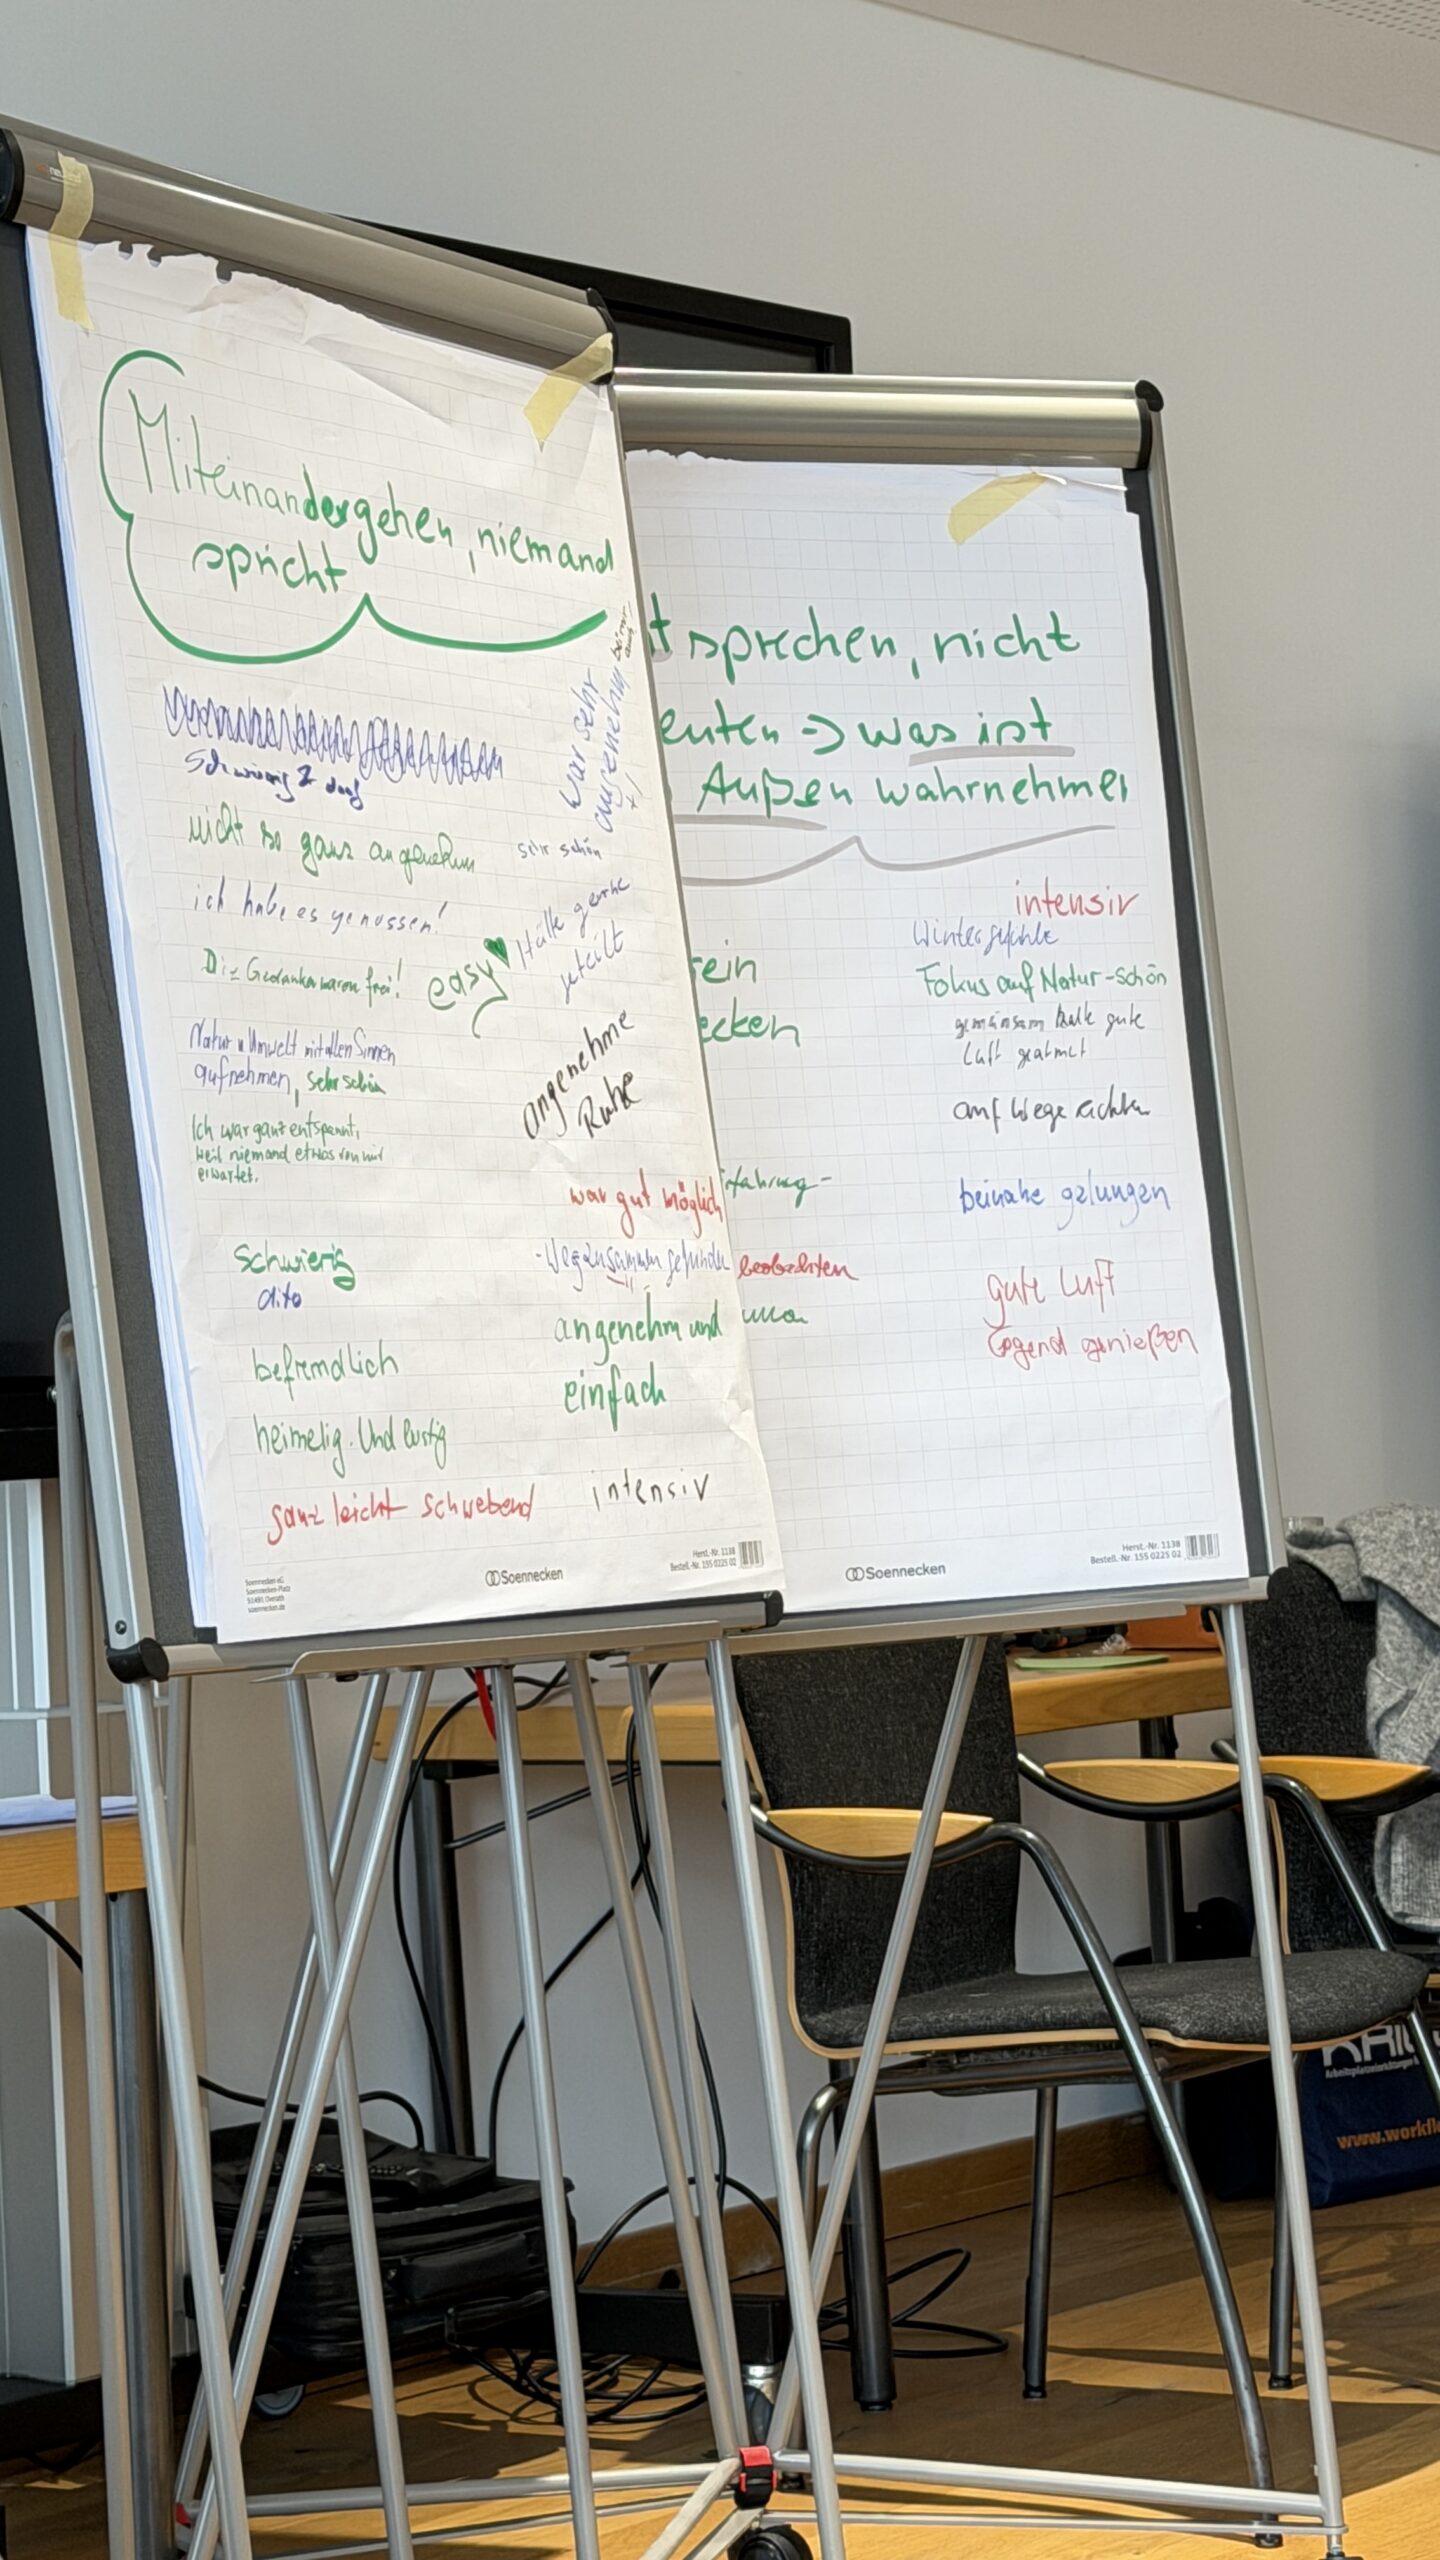 Miteinandergehen, niemand
spricht
war sehr
angenehm
nicht so ganz angenehm
sehr schön
ich habe es genossen!
Hätte gerne
geteilt
Die Gedanken waren frei!
easy
Natur u Umwelt mit allen Sinnen
aufnehmen, sehr schön
angenehme
Ruhe
Ich war ganz entspannt,
weil niemand etwas von mir
erwartet.
war gut möglich
schwierig
dito
- Weg zusammen gefunden
angenehm und
einfach
befremdlich
heimelig. Und lustig
ganz leicht schwebend
intensiv
Soennecken eG
Soennecken-Platz
51491 Overath
soennecken.de
Soennecken
Herst.-Nr. 1138
Bestell.-Nr. 155 0225 02
t sprechen, nicht
euten → was ist
Außen wahrnehmen
intensiv
Wintergefühle
ein
Fokus auf Natur - schön
ecken
gemeinsam kalte gute
Luft geatmet
auf Wege achten
fahrung -
beinahe gelungen
beobachten
gute Luft
Gegend genießen
Soennecken
Herst.-Nr. 1138
Bestell.-Nr. 155 0225 02
www.workfl